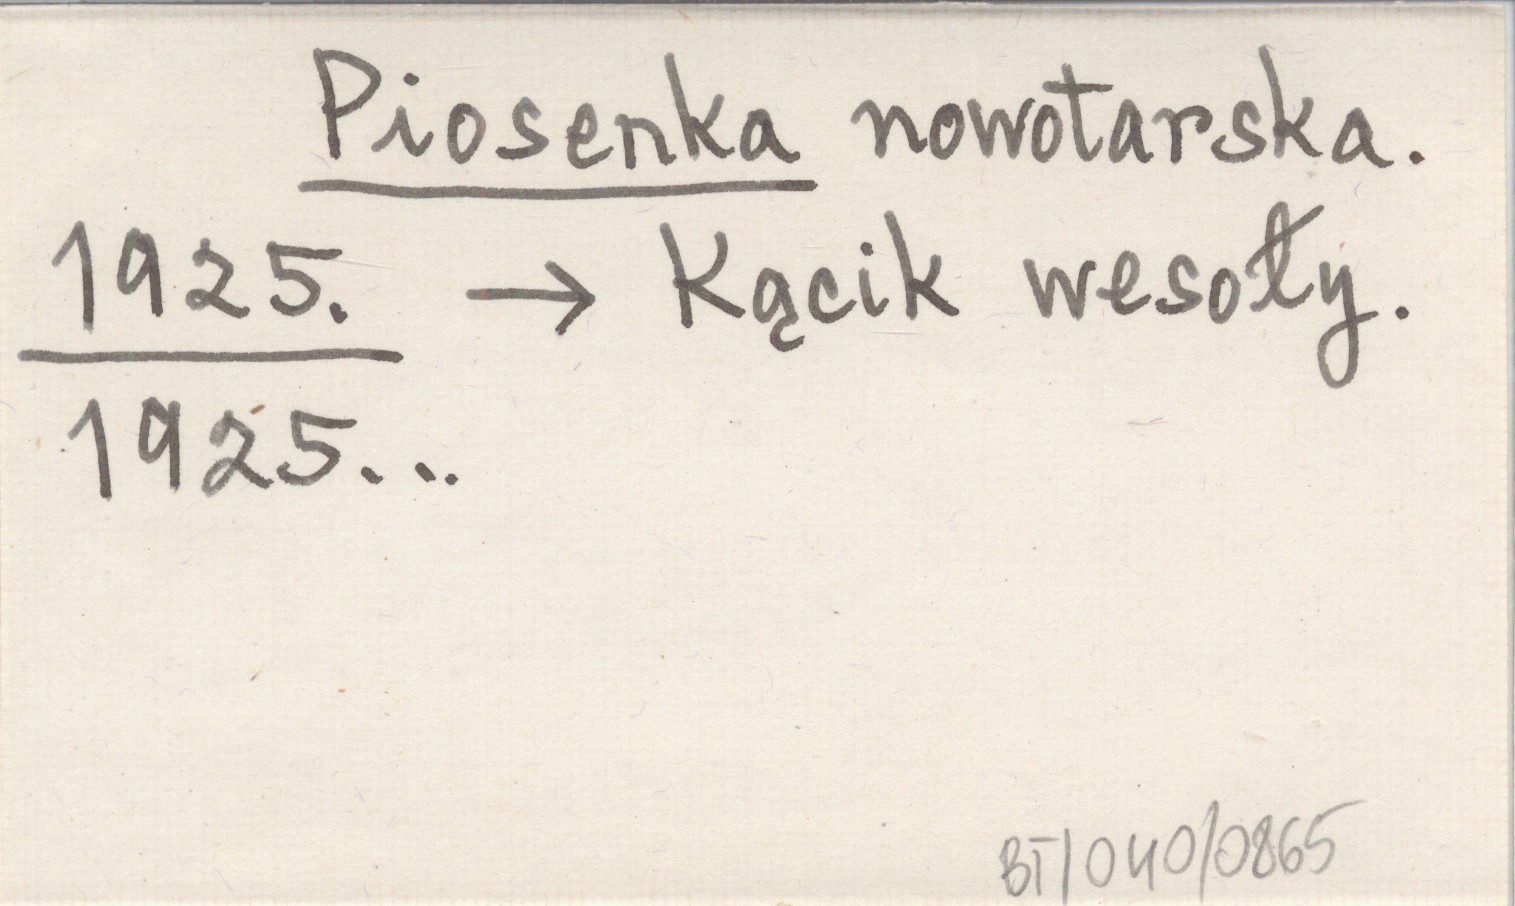 Piosenka nowotarska.
1925. → Kącik wesoły.
1925...
BT/040/0865